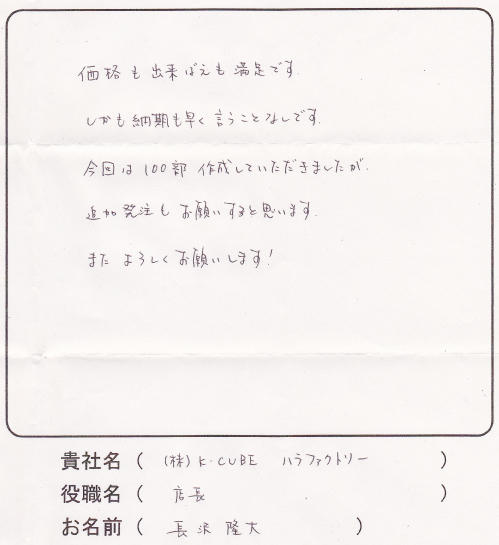 価格も出来ばえも満足です.
しかも納期も早く言うことなしです.
今回は100部作成していただきましたが.
追加発注もお願いすると思います.
またよろしくお願いします!
貴社名 ( (株) K・CUBE ハラファクトリー )
役職名 ( 店長 )
お名前 ( 長沢 隆大 )